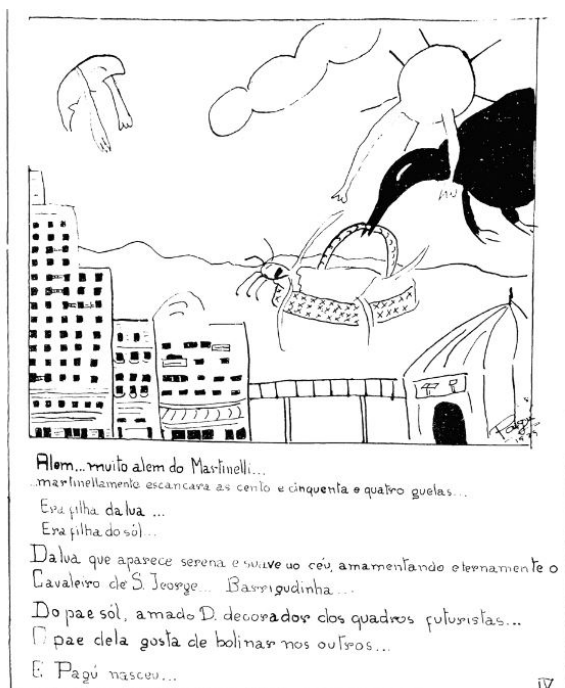 Pagu
1929
Alem...muito alem do Martinelli...
...martinellamente escancara as cento e cinquenta e quatro guelas...
Era filha da lua ...
Era filha do sól...
Da lua que aparece serena e suave no céu, amamentando eternamente o
Cavaleiro de S. Jeorge... Barrigudinha...
Do pae sól, amado D. decorador dos quadros futuristas...
O pae dela gosta de bolinar nos outros...
E Pagú nasceu...
IV